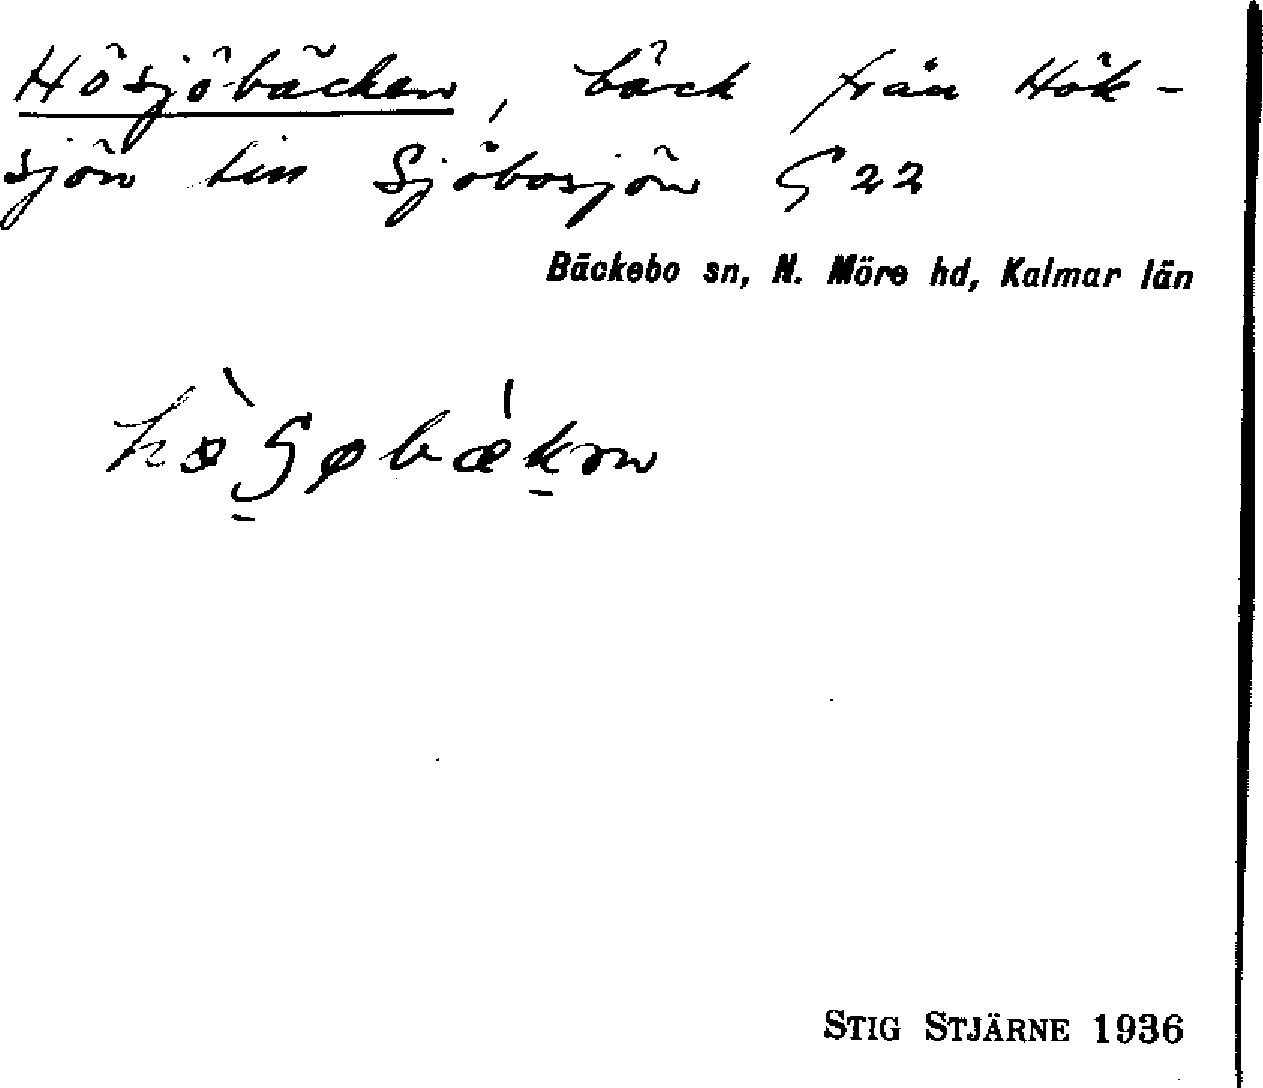 Hösjöbäcken, bäck från Hök-
sjön till Sjöbosjön G 22
Bäckebo sn, N. Möre hd, Kalmar län
STIG STJÄRNE 1936